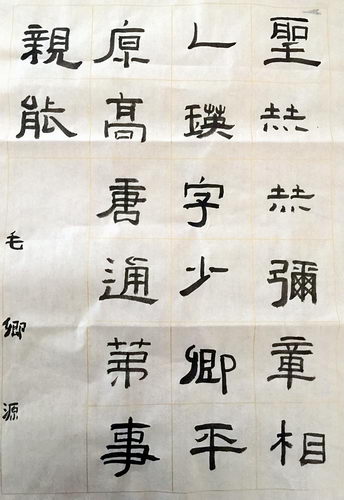 聖赫赫彌章相
乙瑛字少卿平
原高唐通第事
親能
毛卿源